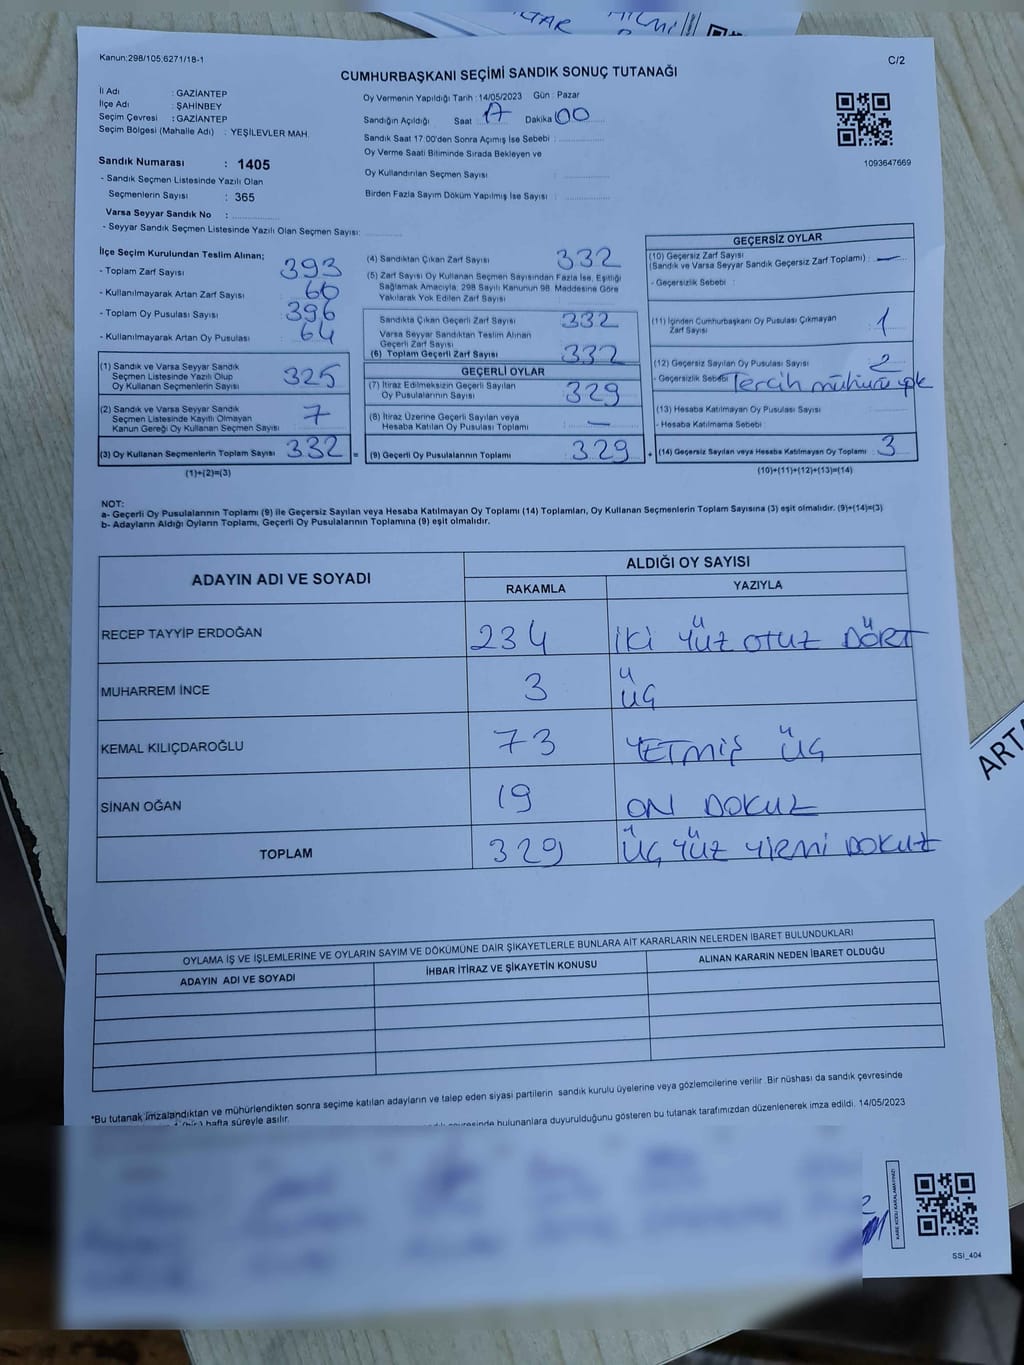 Kanun:298/105,6271/18-1
C/2
CUMHURBAŞKANI SEÇİMİ SANDIK SONUÇ TUTANAĞI
İl Adı : GAZİANTEP
İlçe Adı : ŞAHİNBEY
Seçim Çevresi : GAZİANTEP
Seçim Bölgesi (Mahalle Adı) : YEŞİLEVLER MAH.
Sandık Numarası : 1405
- Sandık Seçmen Listesinde Yazılı Olan
Seçmenlerin Sayısı : 365
Varsa Seyyar Sandık No :
- Seyyar Sandık Seçmen Listesinde Yazılı Olan Seçmen Sayısı:
Oy Vermenin Yapıldığı Tarih :14/05/2023 Gün : Pazar
Sandığın Açıldığı Saat 17 Dakika 00
Sandık Saat 17:00'den Sonra Açımış İse Sebebi :
Oy Verme Saati Bitiminde Sırada Bekleyen ve
Oy Kullandırılan Seçmen Sayısı :
Birden Fazla Sayım Döküm Yapılmış İse Sayısı :
1093647669
İlçe Seçim Kurulundan Teslim Alınan;
- Toplam Zarf Sayısı : 393
- Kullanılmayarak Artan Zarf Sayısı : 60
- Toplam Oy Pusulası Sayısı : 396
- Kullanılmayarak Artan Oy Pusulası : 64
(1) Sandık ve Varsa Seyyar Sandık
Seçmen Listesinde Yazılı Olup
Oy Kullanan Seçmenlerin Sayısı : 325
(2) Sandık ve Varsa Seyyar Sandık
Seçmen Listesinde Kayıtlı Olmayan
Kanun Gereği Oy Kullanan Seçmen Sayısı : 7
(3) Oy Kullanan Seçmenlerin Toplam Sayısı : 332 =
(1)+(2)=(3)
(4) Sandıktan Çıkan Zarf Sayısı : 332
(5) Zarf Sayısı Oy Kullanan Seçmen Sayısından Fazla İse, Eşitliği
Sağlamak Amacıyla; 298 Sayılı Kanunun 98. Maddesine Göre
Yakılarak Yok Edilen Zarf Sayısı :
Sandıkta Çıkan Geçerli Zarf Sayısı : 332
Varsa Seyyar Sandıktan Teslim Alınan
Geçerli Zarf Sayısı :
(6) Toplam Geçerli Zarf Sayısı : 332
GEÇERLİ OYLAR
(7) İtiraz Edilmeksizin Geçerli Sayılan
Oy Pusulasının Sayısı : 329
(8) İtiraz Üzerine Geçerli Sayılan veya
Hesaba Katılan Oy Pusulası Toplamı : —
(9) Geçerli Oy Pusulalarının Toplamı : 329 +
GEÇERSİZ OYLAR
(10) Geçersiz Zarf Sayısı
(Sandık ve Varsa Seyyar Sandık Geçersiz Zarf Toplamı) : —
- Geçersizlik Sebebi :
(11) İçinden Cumhurbaşkanı Oy Pusulası Çıkmayan
Zarf Sayısı : 1
(12) Geçersiz Sayılan Oy Pusulası Sayısı : 2
- Geçersizlik Sebebi Tercih mührü yok
(13) Hesaba Katılmayan Oy Pusulası Sayısı :
- Hesaba Katılmama Sebebi :
(14) Geçersiz Sayılan veya Hesaba Katılmayan Oy Toplamı : 3
(10)+(11)+(12)+(13)=(14)
NOT:
a- Geçerli Oy Pusulalarının Toplamı (9) ile Geçersiz Sayılan veya Hesaba Katılmayan Oy Toplamı (14) Toplamları, Oy Kullanan Seçmenlerin Toplam Sayısına (3) eşit olmalıdır. (9)+(14)=(3)
b- Adayların Aldığı Oyların Toplamı, Geçerli Oy Pusulalarının Toplamına (9) eşit olmalıdır.
ADAYIN ADI VE SOYADI
ALDIĞI OY SAYISI
RAKAMLA YAZIYLA
RECEP TAYYİP ERDOĞAN 234 İKİ YÜZ OTUZ DÖRT
MUHARREM İNCE 3 ÜÇ
KEMAL KILIÇDAROĞLU 73 YETMİŞ ÜÇ
SİNAN OĞAN 19 ON DOKUZ
TOPLAM 329 ÜÇ YÜZ YİRMİ DOKUZ
OYLAMA İŞ VE İŞLEMLERİNE VE OYLARIN SAYIM VE DÖKÜMÜNE DAİR ŞİKAYETLERLE BUNLARA AİT KARARLARIN NELERDEN İBARET BULUNDUKLARI
ADAYIN ADI VE SOYADI İHBAR İTİRAZ VE ŞİKAYETİN KONUSU ALINAN KARARIN NEDEN İBARET OLDUĞU
*Bu tutanak imzalandıktan ve mühürlendikten sonra seçime katılan adayların ve talep eden siyasi partilerin sandık kurulu üyelerine veya gözlemcilerine verilir. Bir nüshası da sandık çevresinde
hafta süreyle asılır.
bulunanlara duyurulduğunu gösteren bu tutanak tarafımızdan düzenlenerek imza edildi. 14/05/2023
KARE KODU KARALAMAYINIZ!
SSI_404
ARTA